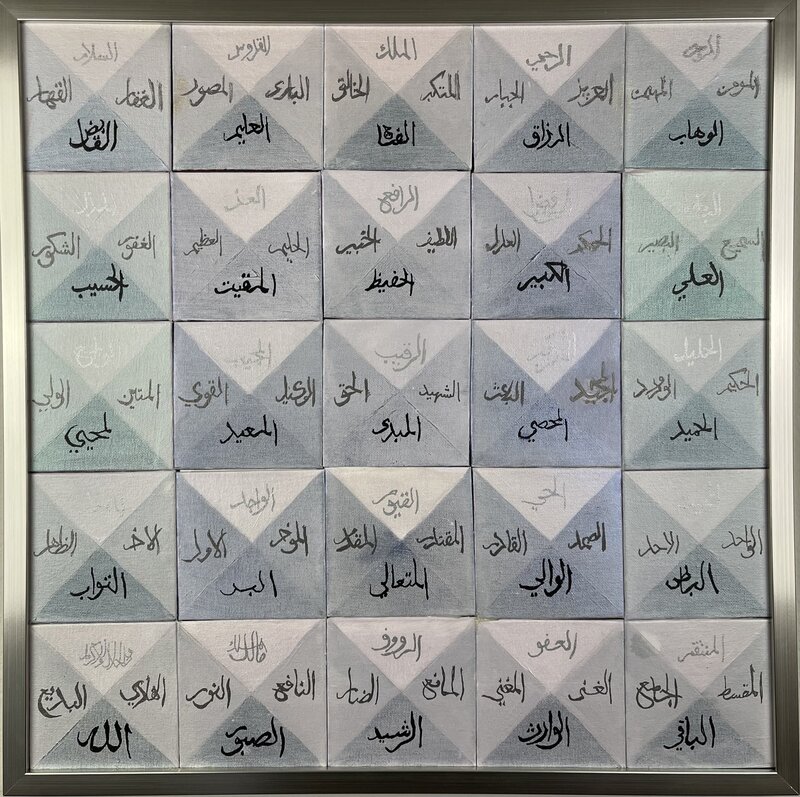 الرحيم الملك القدوس السلام
المومن المهيمن العزيز الجبار المتكبر الخالق البارى المصور الغفار القهار
الوهاب الرزاق الفتاح العليم القابض
الرافع
السميع البصير الحكم العدل اللطيف الخبير الحليم العظيم الغفور الشكور
العلي الكبير الحفيظ المقيت الحسيب
الجليل الرقيب المجيب
الحكيم الودود المجيد الباعث الشهيد الحق الوكيل القوي المتين الولي
الحميد المحصي المبدى المعيد المحيي
الحي القيوم الواجد
الواحد الاحد الصمد القادر المقتدر المقدم الموخر الاول الاخر الظاهر
الوالي المتعالي البر التواب
المنتقم العفو الرووف مالك الملك
المقسط الجامع الغنى المغني المانع الضار النافع النور الهادي البديع
الباقي الوارث الرشيد الصبور الله